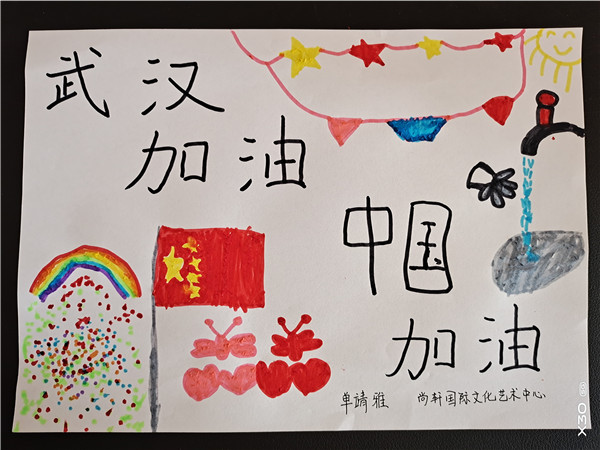 武汉
加油
中国
加油
单靖雅 尚轩国际文化艺术中心
X30